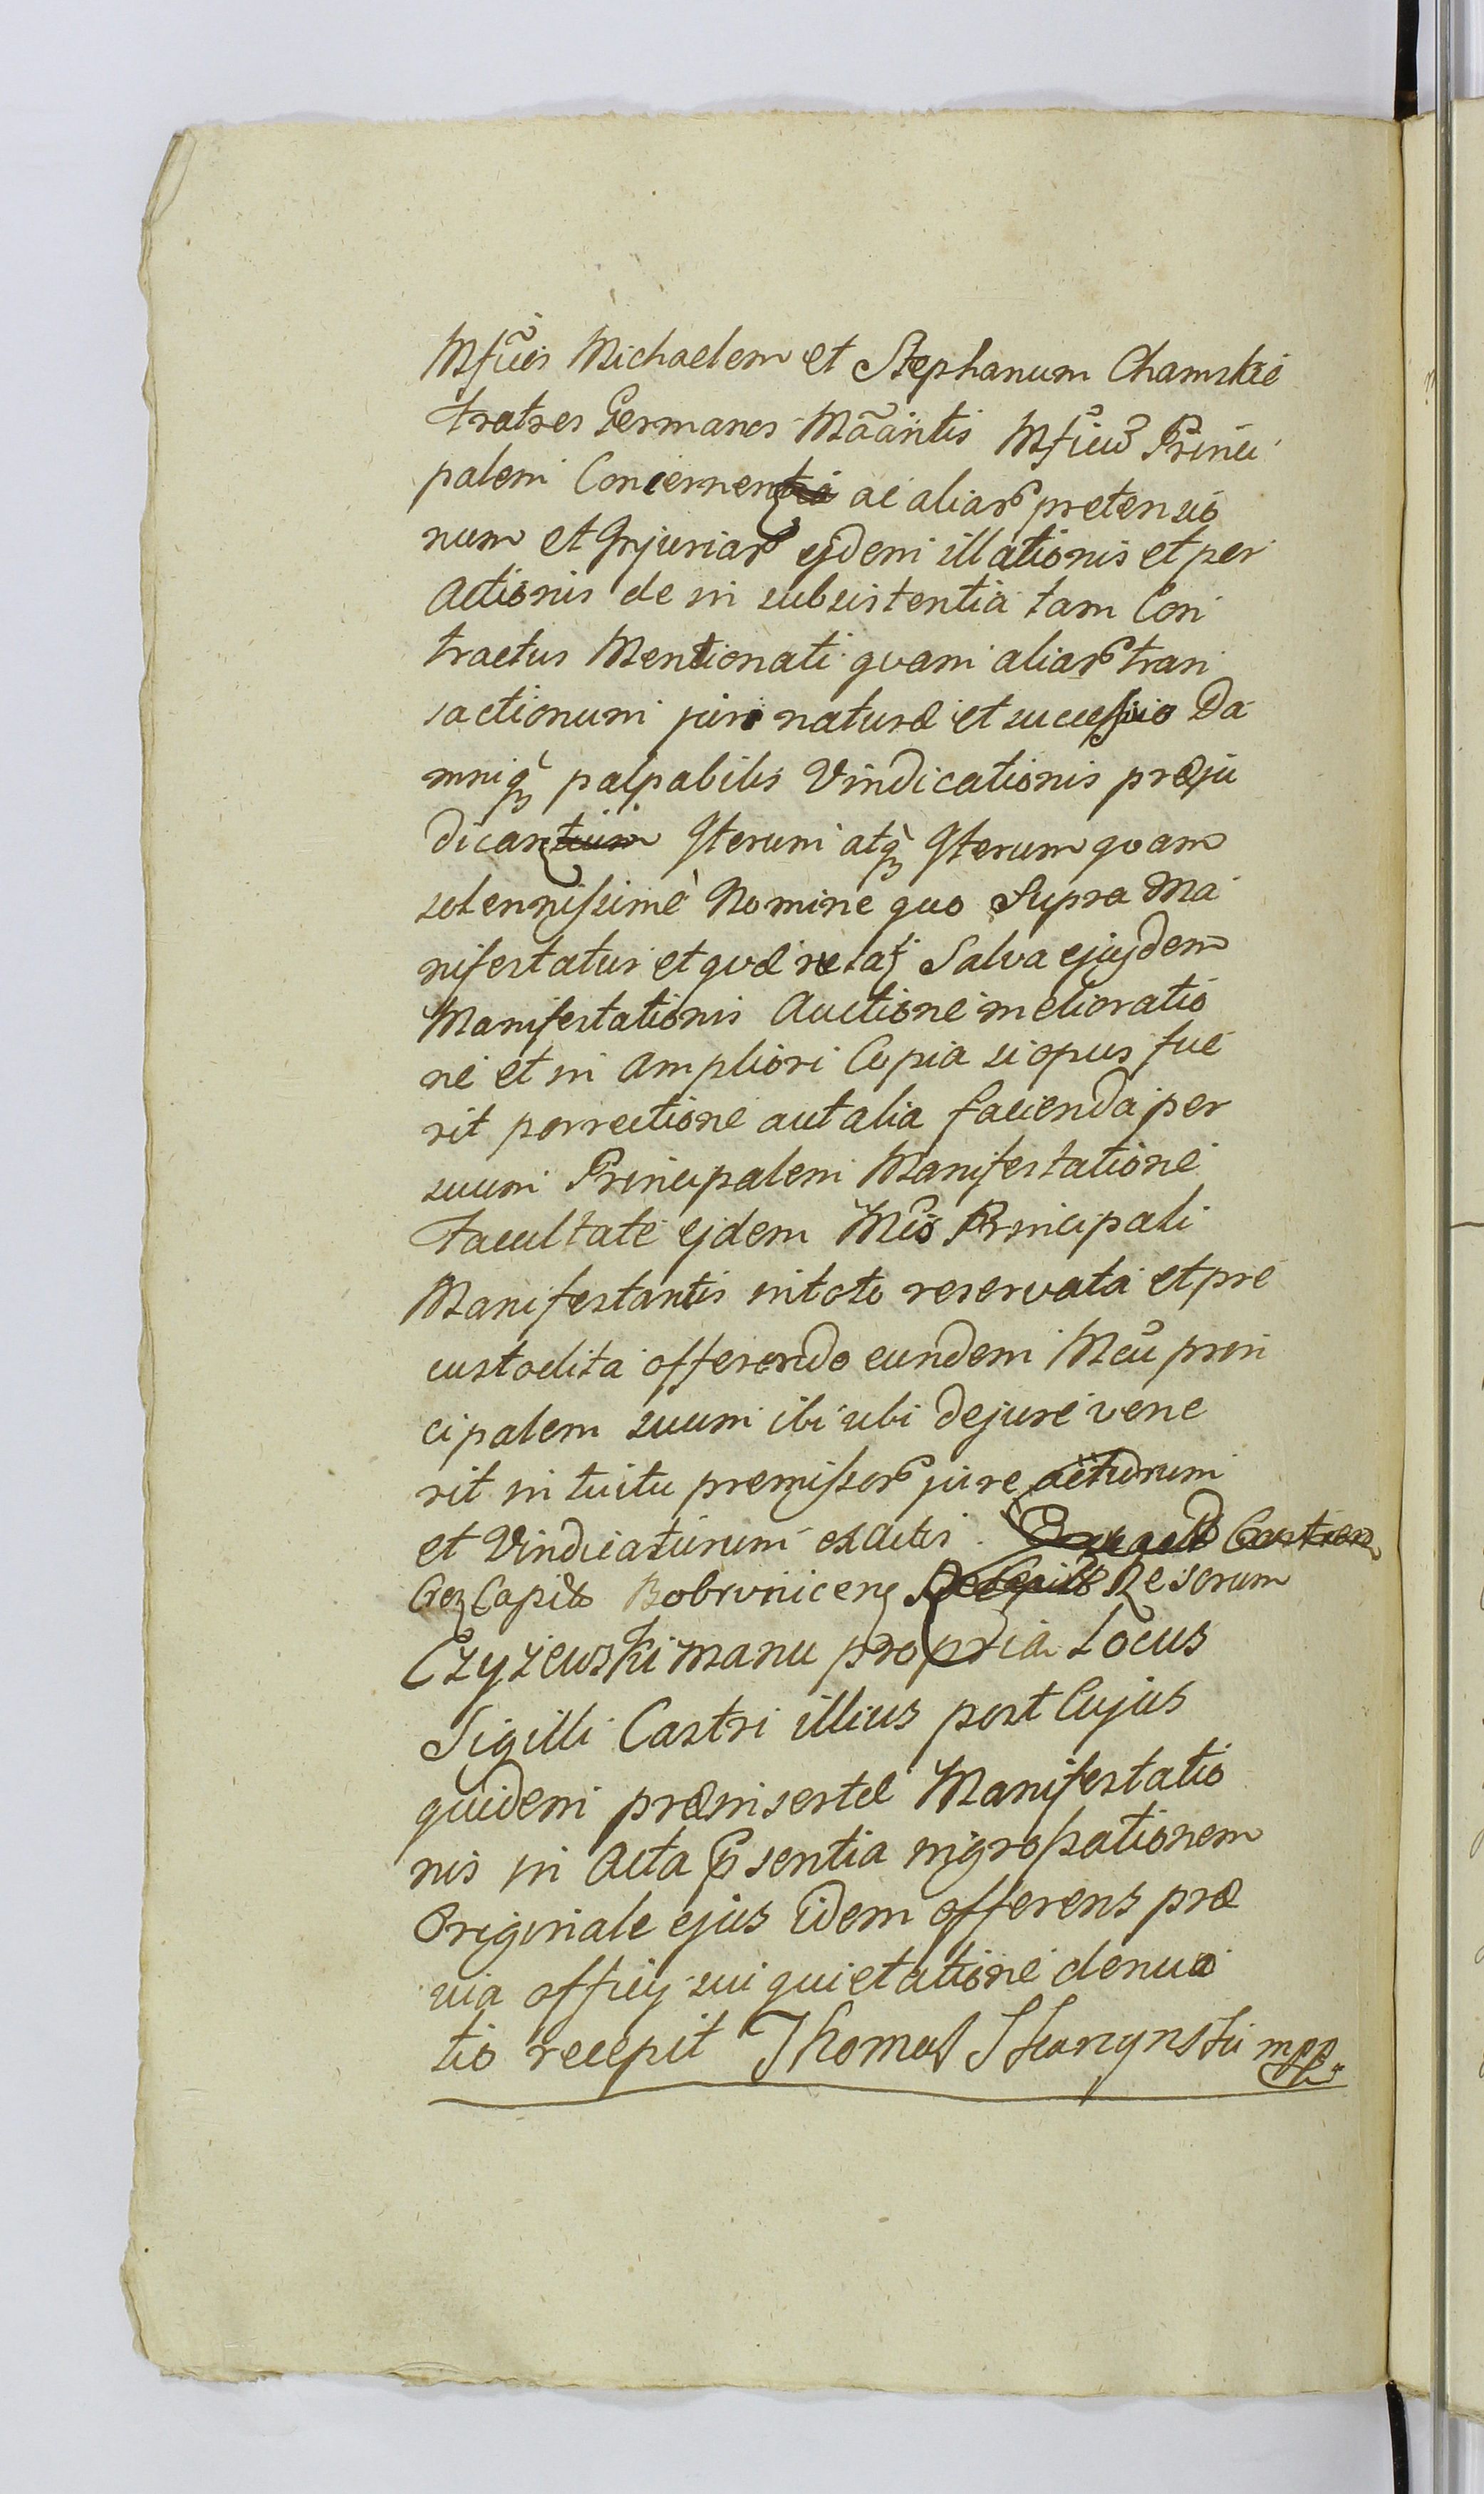 Mfūes Michaelem et Stephanum Chamskie
Fratres Germanos Māāntis Mfīcū Princi
palem Concernen ac aliar pretensio
num et Injuriar ejdem illationis et per
Actionis de in subsistentia tam Con
tractus Mentionati quam aliar tran
sactionum juri naturæ et successivo Da
mniq palpabilis Vindicationis præju
dican Iterum atq Iterum quam
solennissimè Nomine quo Supra Ma
nifestatur et quæ relat Salva ejusdem
Manifestationis Auctione melioratio
ne et in Ampliori Copia si opus fue
rit porrectione aut alia facienda per
suum Principalem Manifestatione
Facultate ejdem Mco Principali
Manifestantis in toto reservata et pre
custodita offerendo eundem Mcū prin
cipalem suum ibi ubi de jure vene
rit in tuitu premissor jure acturum
et Vindicaturum ex actis Castren
Capit Bobrvnicen Resorum
Czyżewski manu propria Locus
Sigilli Castri illius post Cujus
quidem præinsertæ Manifestatio
nis in Acta Psentia ingrossationem
Originale ejus idem offerens præ
via officij sui quietatione denuo
tio recepit Thomas Skarzynski mpp